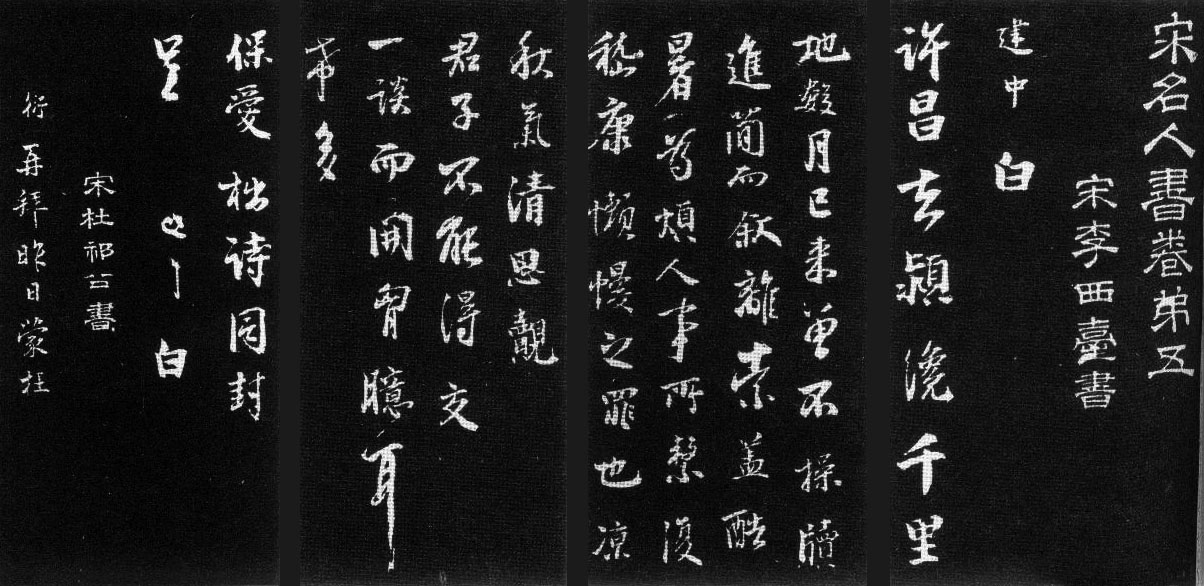 宋名人書卷弟五
宋李西臺書
建中
白
許昌去潁濆千里
地數月已來曾不操牘
進簡而敘離索蓋酷
暑方煩人事所繫復
嵇康懶慢之罪也涼
秋氣清思覿
君子不能得交
一談而開胷臆耳
希多
保愛拙詩同封
呈
白
宋杜祁公書
衍再拜昨日蒙枉